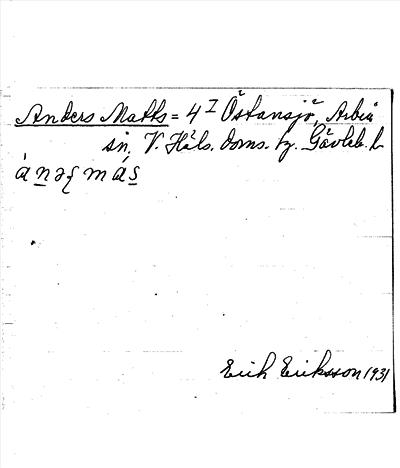 Anders Matts = 4 I Östansjö, Arbrå
sn. V. Häls. doms. tg. Gävleb. l
ȧn̲əʃ mȧs̲
Erik Eriksson 1931